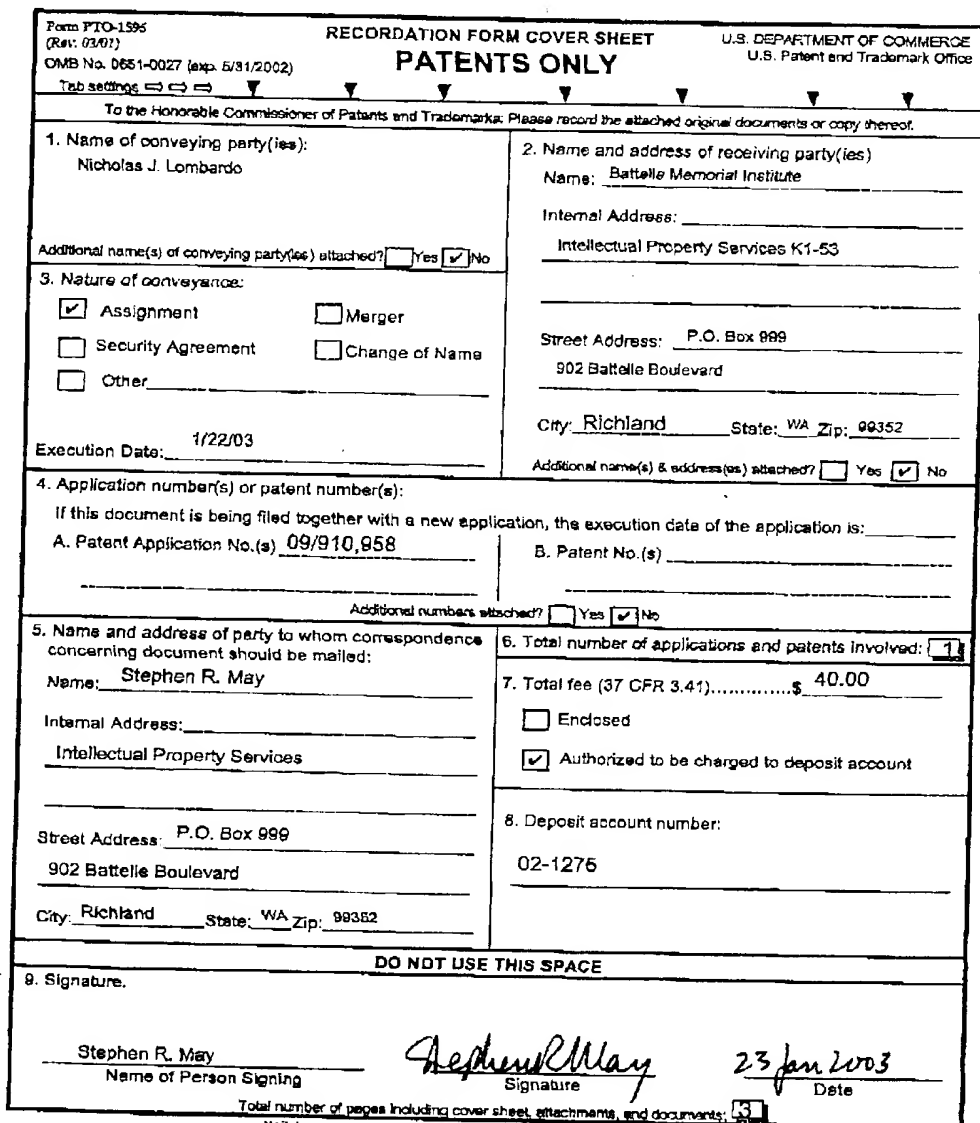 Form PTO-1595
(Rev. 03/01)
OMB No. 0651-0027 (exp. 5/31/2002)
Tab settings
RECORDATION FORM COVER SHEET
PATENTS ONLY
U.S. DEPARTMENT OF COMMERCE
U.S. Patent and Trademark Office
To the Honorable Commissioner of Patents and Trademarks: Please record the attached original documents or copy thereof.
1. Name of conveying party(ies):
Nicholas J. Lombardo
Additional name(s) of conveying party(ies) attached? Yes ✔ No
2. Name and address of receiving party(ies)
Name: Battelle Memorial Institute
Internal Address:
Intellectual Property Services K1-53
Street Address: P.O. Box 999
902 Battelle Boulevard
City: Richland State: WA Zip: 99352
Additional name(s) & address(es) attached? Yes ✔ No
3. Nature of conveyance:
✔ Assignment Merger
Security Agreement Change of Name
Other
Execution Date: 1/22/03
4. Application number(s) or patent number(s):
If this document is being filed together with a new application, the execution date of the application is:
A. Patent Application No.(s) 09/910,958
B. Patent No.(s)
Additional numbers attached? Yes ✔ No
5. Name and address of party to whom correspondence
concerning document should be mailed:
Name: Stephen R. May
Internal Address:
Intellectual Property Services
Street Address: P.O. Box 999
902 Battelle Boulevard
City: Richland State: WA Zip: 99352
6. Total number of applications and patents involved: 1
7. Total fee (37 CFR 3.41)..............$ 40.00
Enclosed
✔ Authorized to be charged to deposit account
8. Deposit account number:
02-1275
DO NOT USE THIS SPACE
9. Signature.
Stephen R. May Stephen R May 23 Jan 2003
Name of Person Signing Signature Date
Total number of pages including cover sheet, attachments, and documents: 3